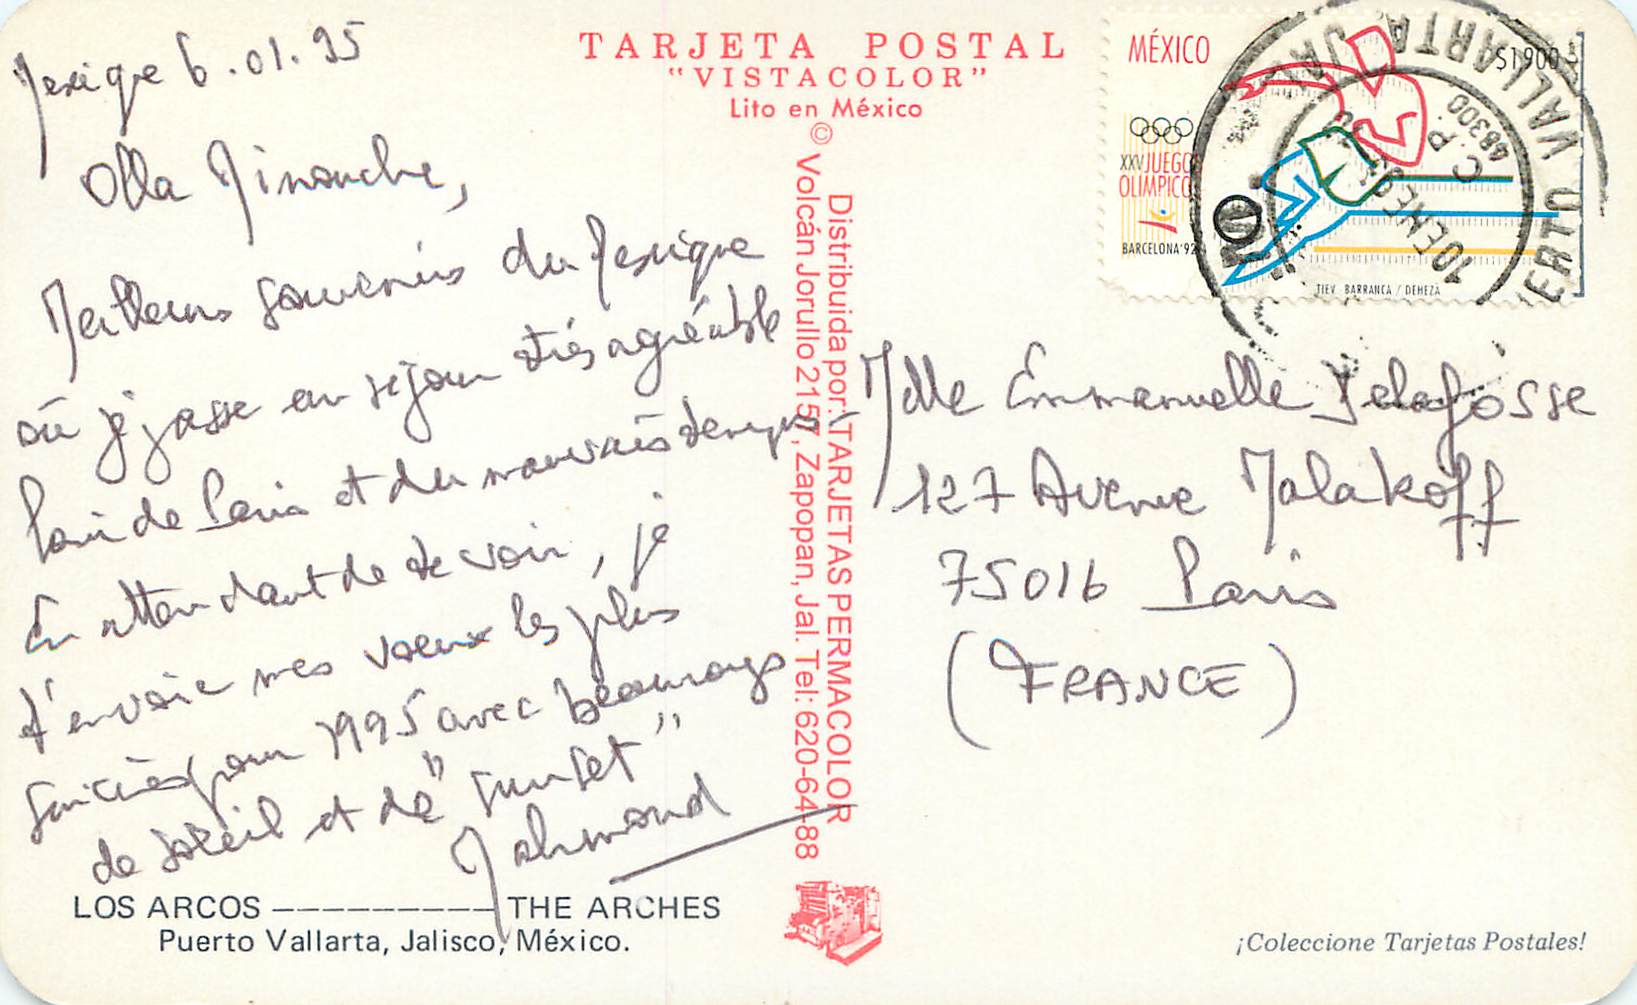 TARJETA POSTAL
"VISTACOLOR"
Lito en México
©
Mexique 6.01.95
Olla Minouche,
Meilleurs souvenirs du Mexique
où je passe un séjour très agréable
loin de Paris et du mauvais temps.
En attendant de te voir, je
t'envoie mes voeux les plus
sincères pour 1995 avec beaucoup
de soleil et de "sunset"
Mahmoud
LOS ARCOS ---------- THE ARCHES
Puerto Vallarta, Jalisco, México.
Distribuida por: TARJETAS PERMACOLOR
Volcán Jorullo 2157, Zapopan, Jal. Tel: 620-64-88
MÉXICO
$1900
XXV JUEGOS
OLIMPICO
BARCELONA '92
TIEV BARRANCA / DEHEZA
ERTO VALLARTA JAL
C.P.
48300
10 ENE
Melle Emmanuelle Delafosse
127 Avenue Malakoff
75016 Paris
(FRANCE)
¡Coleccione Tarjetas Postales!